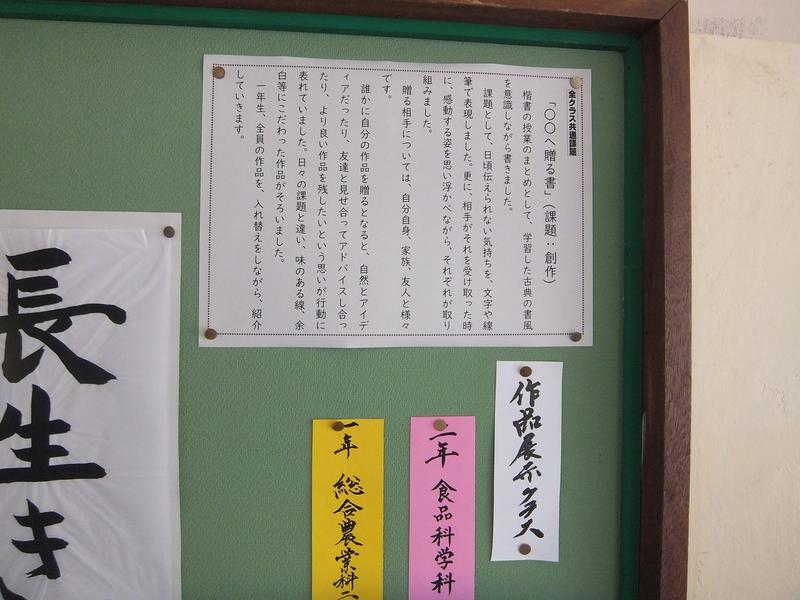 全クラス共通課題
「〇〇へ贈る書」（課題：創作）
楷書の授業のまとめとして、学習した古典の書風
を意識しながら書きました。
課題として、日頃伝えられない気持ちを、文字や線
筆で表現しました。更に、相手がそれを受け取った時
に、感動する姿を思い浮かべながら、それぞれが取り
組みました。
贈る相手については、自分自身、家族、友人と様々
です。
誰かに自分の作品を贈るとなると、自然とアイデ
ィアだったり、友達と見せ合ってアドバイスし合っ
たり、より良い作品を残したいという思いが行動に
表れていました。日々の課題と違い、味のある線、余
白等にこだわった作品がそろいました。
一年生、全員の作品を、入れ替えをしながら、紹介
していきます。
作品展示クラス
二年 食品科学科
一年 総合農業科
長生き